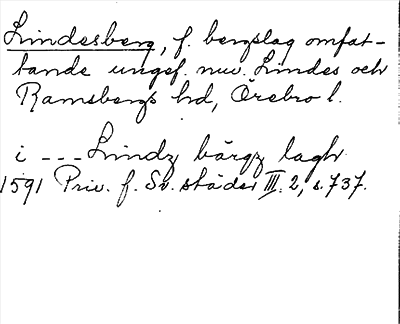 Lindesberg, f. bergslag omfat-
tande ungef. nuv. Lindes och
Ramsbergs hd, Örebro l.
i --- Lindz bärgz lagh
1591 Priv. f. Sv. städer III. 2, s. 737.